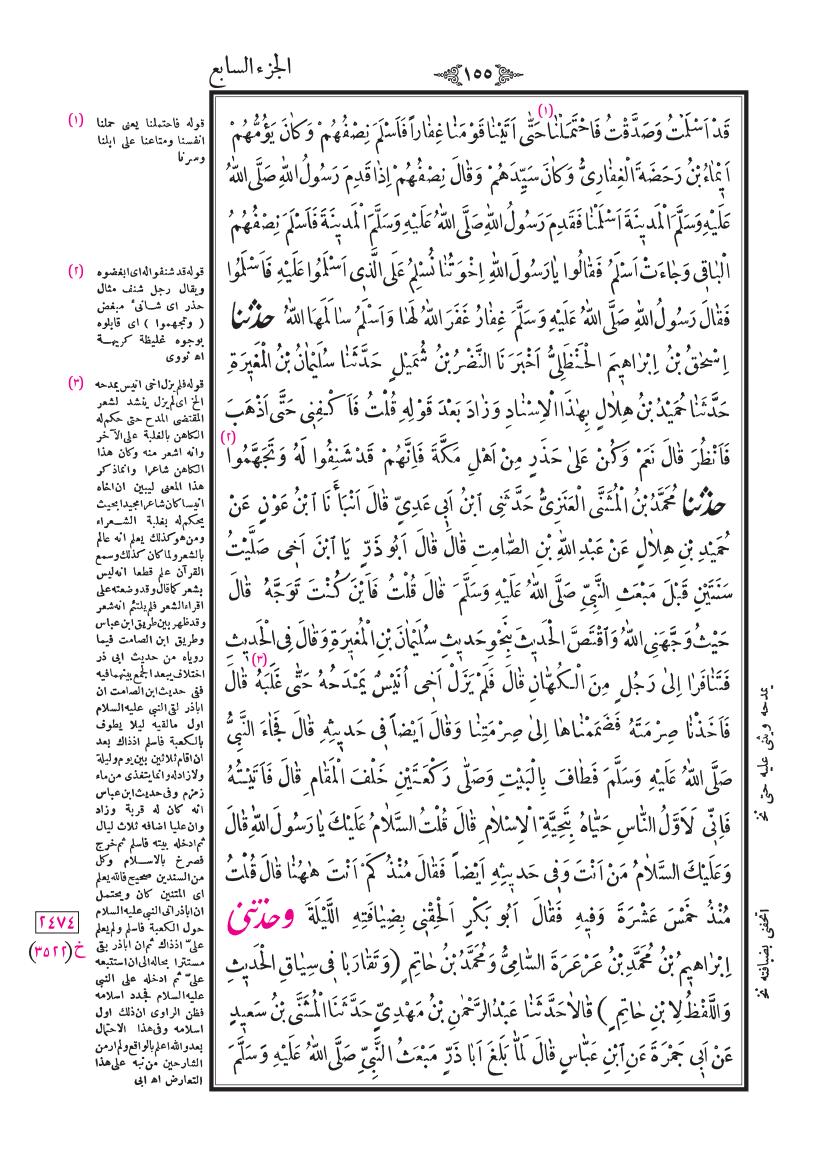 الجزء السابع
١٥٥
قَدْ اَسْلَمْتُ وَصَدَّقْتُ فَاحْتَمَلْنَا (١) حَتّٰى اَتَيْنَا قَوْمَنَا غِفَاراً فَاَسْلَمَ نِصْفُهُمْ وَكَانَ يَؤُمُّهُمْ
اَيْمَاءُ بْنُ رَحَضَةَ الْغِفَارِىُّ وَكَانَ سَيِّدَهُمْ وَقَالَ نِصْفُهُمْ اِذَا قَدِمَ رَسُولُ اللهِ صَلَّى اللهُ
عَلَيْهِ وَسَلَّمَ الْمَدينَةَ اَسْلَمْنَا فَقَدِمَ رَسُولُ اللهِ صَلَّى اللهُ عَلَيْهِ وَسَلَّمَ الْمَدينَةَ فَاَسْلَمَ نِصْفُهُمُ
الْبَاقى وَجَاءَتْ اَسْلَمُ فَقَالُوا يَا رَسُولَ اللهِ اِخْوَتُنَا نُسْلِمُ عَلَى الَّذى اَسْلَمُوا عَلَيْهِ فَاَسْلَمُوا
فَقَالَ رَسُولُ اللهِ صَلَّى اللهُ عَلَيْهِ وَسَلَّمَ غِفَارُ غَفَرَ اللهُ لَهَا وَاَسْلَمُ سَالَمَهَا اللهُ حدثنا
اِسْحٰقُ بْنُ اِبْرَاهيمَ الْحَنْظَلِىُّ اَخْبَرَنَا النَّضْرُ بْنُ شُمَيْلٍ حَدَّثَنَا سُلَيْمَانُ بْنُ الْمُغيرَةِ
حَدَّثَنَا حُمَيْدُ بْنُ هِلَالٍ بِهٰذَا الْاِسْنَادِ وَزَادَ بَعْدَ قَوْلِهِ قُلْتُ فَاكْفِنى حَتّٰى اَذْهَبَ
فَاَنْظُرَ قَالَ نَعَمْ وَكُنْ عَلٰى حَذَرٍ مِنْ اَهْلِ مَكَّةَ فَاِنَّهُمْ قَدْ شَنِفُوا لَهُ وَتَجَهَّمُوا (٢)
حدثنا مُحَمَّدُ بْنُ الْمُثَنَّى الْعَنَزِىُّ حَدَّثَنى ابْنُ اَبى عَدِىٍّ قَالَ اَنْبَأَنَا ابْنُ عَوْنٍ عَنْ
حُمَيْدِ بْنِ هِلَالٍ عَنْ عَبْدِ اللهِ بْنِ الصَّامِتِ قَالَ قَالَ اَبُو ذَرٍّ يَا ابْنَ اَخى صَلَّيْتُ
سَنَتَيْنِ قَبْلَ مَبْعَثِ النَّبِىِّ صَلَّى اللهُ عَلَيْهِ وَسَلَّمَ قَالَ قُلْتُ فَاَيْنَ كُنْتَ تَوَجَّهُ قَالَ
حَيْثُ وَجَّهَنِىَ اللهُ وَاقْتَصَّ الْحَديثَ بِنَحْوِ حَديثِ سُلَيْمَانَ بْنِ الْمُغيرَةِ وَقَالَ فِى الْحَديثِ
فَتَنَافَرَا اِلٰى رَجُلٍ مِنَ الْكُهَّانِ قَالَ فَلَمْ يَزَلْ اَخى اُنَيْسٌ يَمْدَحُهُ (٣) حَتّٰى غَلَبَهُ قَالَ
فَاَخَذْنَا صِرْمَتَهُ فَضَمَمْنَاهَا اِلٰى صِرْمَتِنَا وَقَالَ اَيْضاً فى حَديثِهِ قَالَ فَجَاءَ النَّبِىُّ
صَلَّى اللهُ عَلَيْهِ وَسَلَّمَ فَطَافَ بِالْبَيْتِ وَصَلّٰى رَكْعَتَيْنِ خَلْفَ الْمَقَامِ قَالَ فَاَتَيْتُهُ
فَاِنّى لَاَوَّلُ النَّاسِ حَيَّاهُ بِتَحِيَّةِ الْاِسْلَامِ قَالَ قُلْتُ السَّلَامُ عَلَيْكَ يَا رَسُولَ اللهِ قَالَ
وَعَلَيْكَ السَّلَامُ مَنْ اَنْتَ وَفى حَديثِهِ اَيْضاً فَقَالَ مُنْذُ كَمْ اَنْتَ هٰهُنَا قَالَ قُلْتُ
مُنْذُ خَمْسَ عَشْرَةَ وَفيهِ فَقَالَ اَبُو بَكْرٍ اَلْحِقْنى بِضِيَافَتِهِ اللَّيْلَةَ وحدثنى
اِبْرَاهيمُ بْنُ مُحَمَّدِ بْنِ عَرْعَرَةَ السَّامِىُّ وَمُحَمَّدُ بْنُ حَاتِمٍ (وَتَقَارَبَا فى سِيَاقِ الْحَديثِ
وَاللَّفْظُ لِابْنِ حَاتِمٍ) قَالَا حَدَّثَنَا عَبْدُ الرَّحْمٰنِ بْنُ مَهْدِىٍّ حَدَّثَنَا الْمُثَنَّى بْنُ سَعيدٍ
عَنْ اَبى جَمْرَةَ عَنِ ابْنِ عَبَّاسٍ قَالَ لَمَّا بَلَغَ اَبَا ذَرٍّ مَبْعَثُ النَّبِىِّ صَلَّى اللهُ عَلَيْهِ وَسَلَّمَ
(١) قوله فاحتملنا يعنى حملنا
انفسنا ومتاعنا على ابلنا
وسرنا
(٢) قوله قد شنفوا له اى ابغضوه
ويقال رجل شنف مثال
حذر اى شانئ مبغض
(وتجهموا) اى قابلوه
بوجوه غليظة كريهة
اه نووى
(٣) قوله فلم يزل اخى انيس يمدحه
الخ اى لم يزل ينشد لشعر
المقتضى المدح حتى حكم له
الكاهن بالغلبة على الآخر
وانه اشعر منه وكان هذا
الكاهن شاعرا وانما ذكر
هذا المعنى ليبين ان اخاه
انيسا كان شاعرا مجيدا بحيث
يحكم له بغلبة الشعراء
ومن هو كذلك يعلم انه عالم
بالشعر ولما كان كذلك وسمع
القرآن علم قطعا انه ليس
بشعر كما قال وقد وضعته على
اقراء الشعر فلم يلتئم انه شعر
وقد ظهر بين طريق ابن عباس
وطريق ابن الصامت فيما
روياه من حديث ابى ذر
اختلاف يبعد الجمع بينهما فيه
ففى حديث ابن الصامت ان
اباذر لقى النبى عليه السلام
اول مالقيه ليلا يطوف
بالكعبة فاسلم اذذاك بعد
ان اقام ثلاثين بين يوم وليلة
ولا زاد له وانما يتغذى من ماء
زمزم وفى حديث ابن عباس
انه كان له قربة وزاد
وان عليا اضافه ثلاث ليال
ثم ادخله بيته فاسلم ثم خرج
فصرخ بالاسلام وكل
من السندين صحيح فالله يعلم
اى المتنين كان ويحتمل
ان اباذر اتى النبى عليه السلام
حول الكعبة فاسلم ولم يعلم
علىّ اذذاك ثم ان اباذر بقى
مستترا بحاله الى ان استتبعه
علىّ ثم ادخله على النبى
عليه السلام فجدد اسلامه
فظن الراوى ان ذلك اول
اسلامه وفى هذا الاحتمال
بعد والله اعلم بالواقع ولم ار من
الشارحين من نبه على هذا
التعارض اه ابى
٢٤٧٤
خ (٣٥٢٢)
يمدحه ويثنى عليه حتى نخ
اتحفنى بضيافته نخ